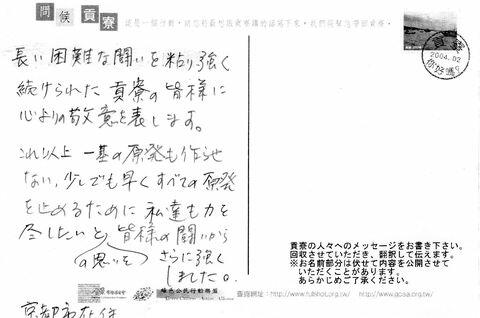 問候貢寮
這是一個行動,請您將最想跟貢寮講的話寫下來,我們將幫您帶回貢寮。
長い困難な闘いを粘り強く
続けられた貢寮の皆様に
心よりの敬意を表します。
これ以上一基の原発も作らせ
ない、少しでも早くすべての原発
を止めるために私達も力を
尽したいと皆様の闘いから
の思いを さらに強く
しました。
京都市在住
貢寮
2004.02
你好嗎
貢寮の人々へのメッセージをお書き下さい。
回収させていただき、翻訳して伝えます。
※お名前部分は伏せて内容を公開させて
いただくことがあります。
あらかじめご了承ください。
綠色公民行動聯盟
查詢網址:http://www.fulishot.org.tw/ http://www.gcaa.org.tw/